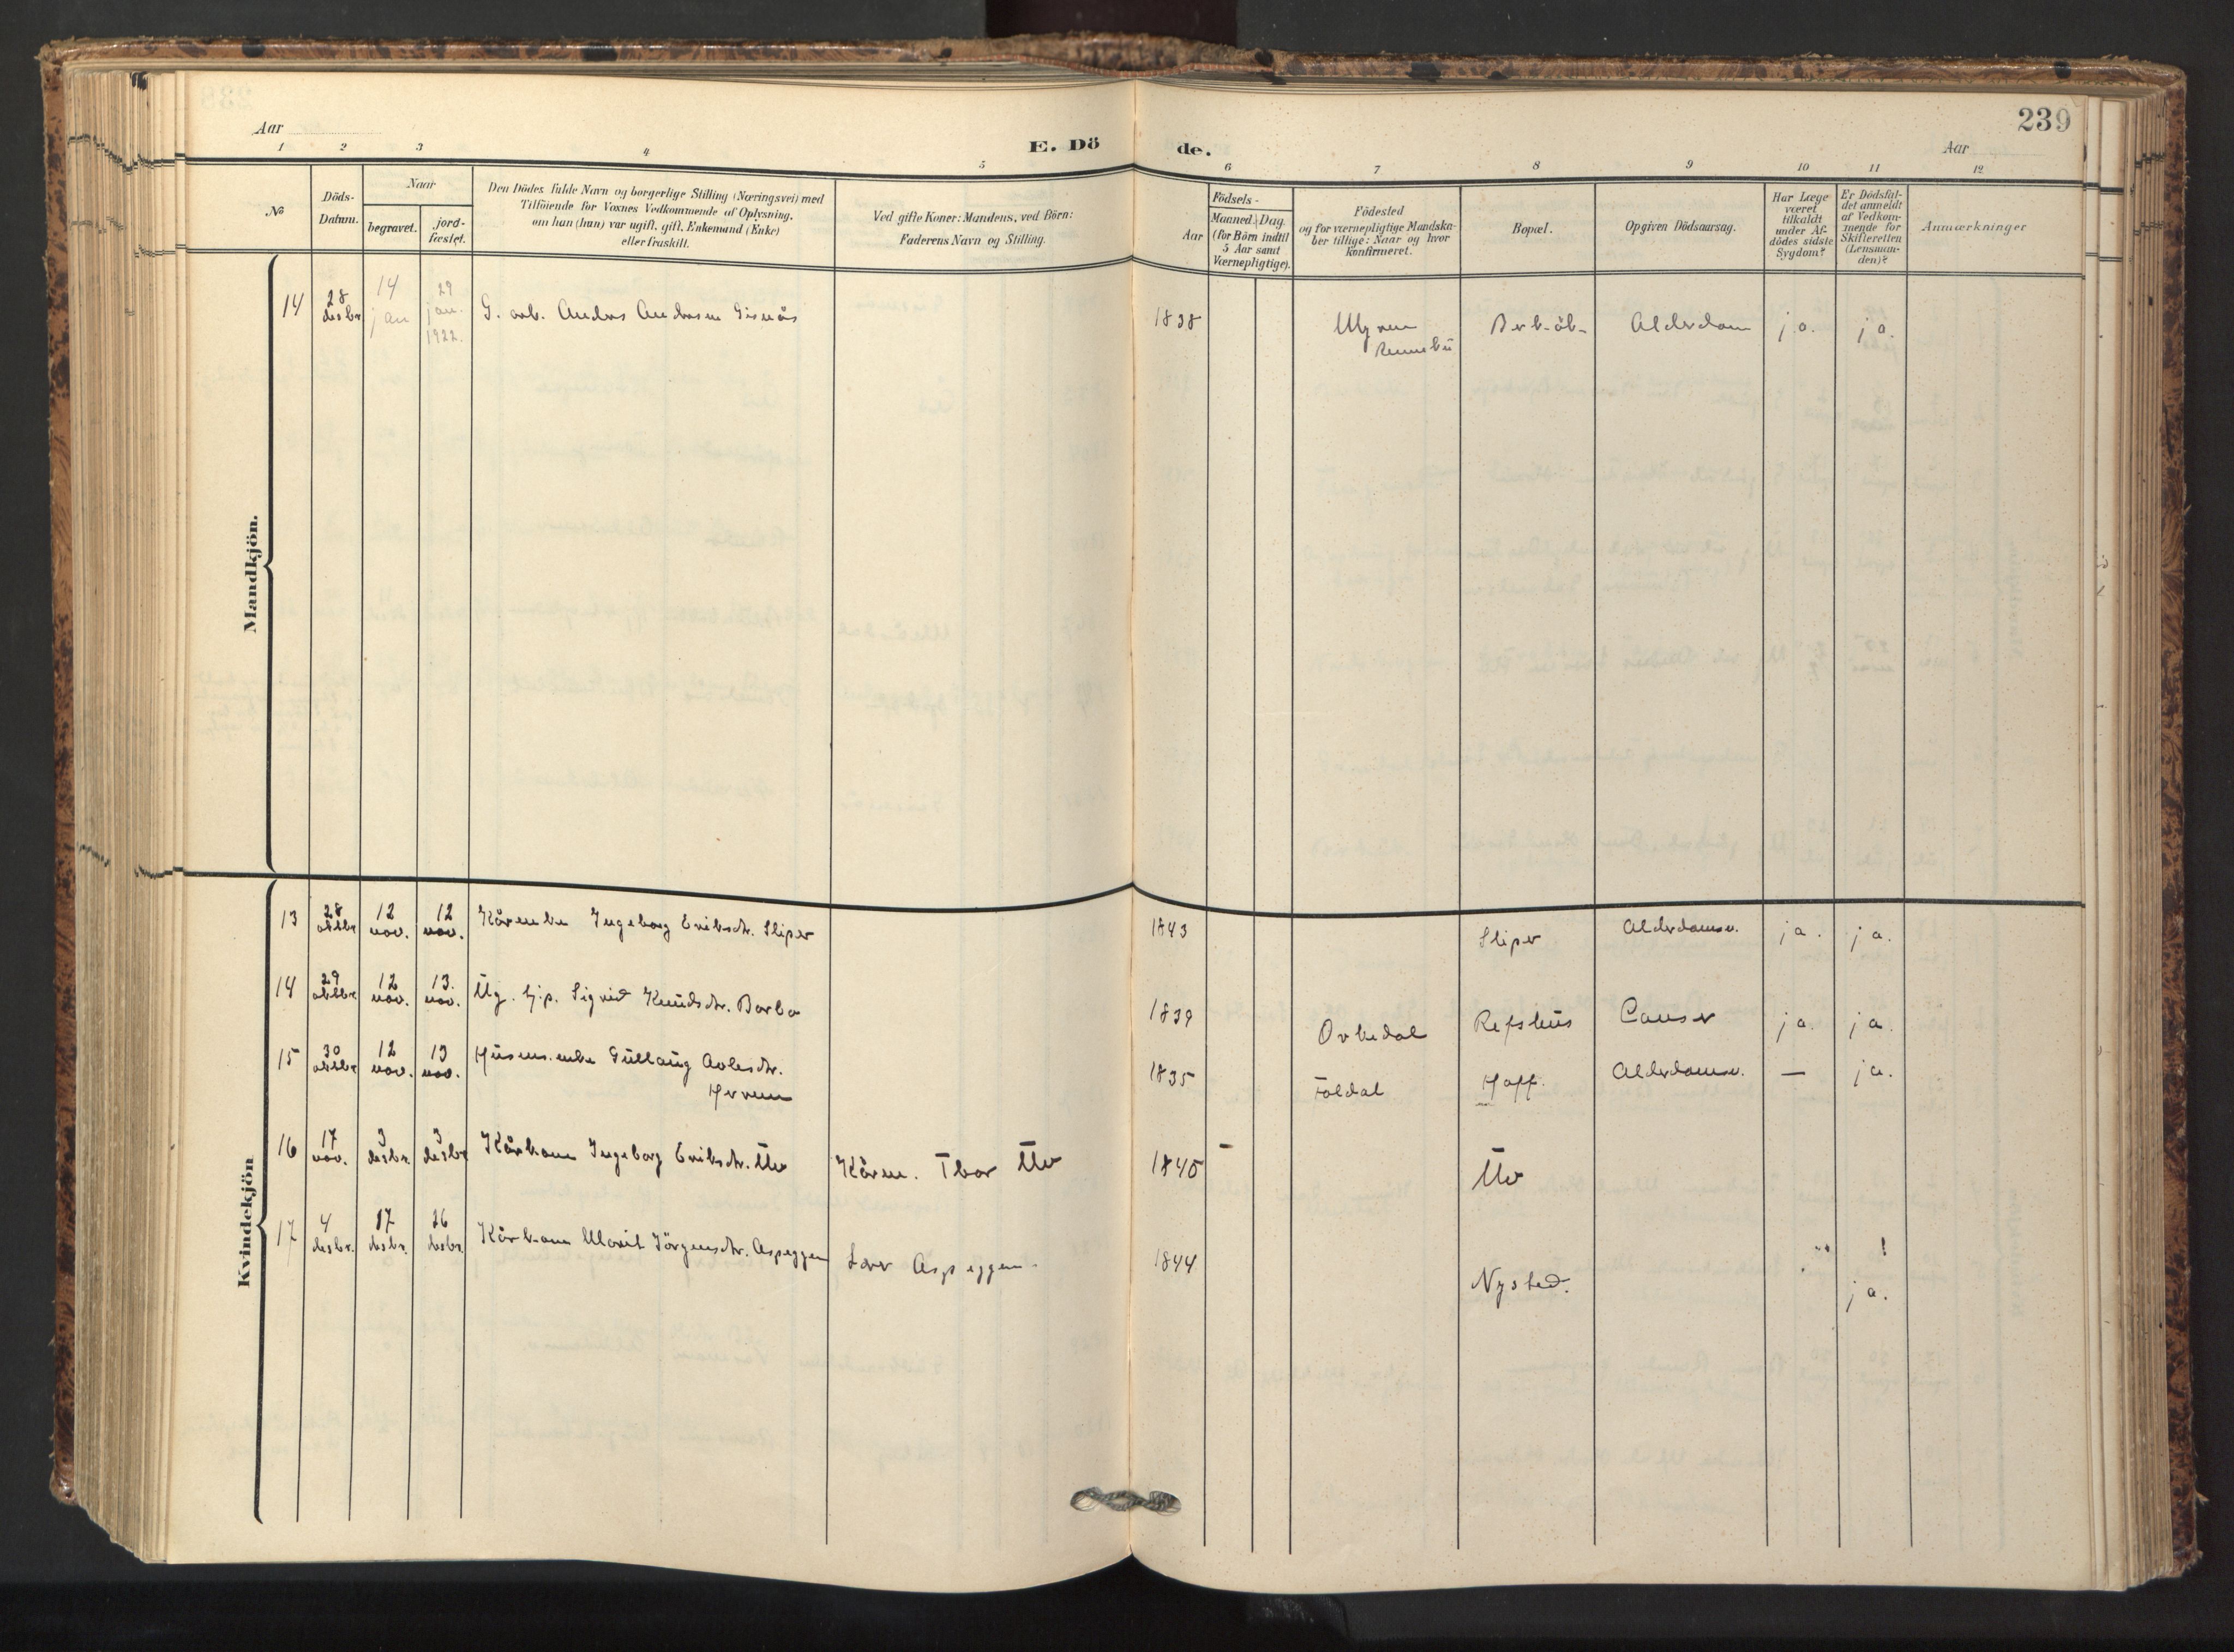 239
Aar
E. Dö
de.
Aar
1 2 3 4 5 6 7 8 9 10 11 12
No
Döds-
Datum.
Naar
begravet.
jord-
fæstet.
Den Dödes fulde Navn og borgerlige Stilling (Næringsvei) med
Tilföiende for Voxnes Vedkommende af Oplysning,
om han (hun) var ugift, gift, Enkemand (Enke)
eller fraskilt.
Ved gifte Koner: Mandens, ved Börn:
Faderens Navn og Stilling.
Födsels-
Aar
Maaned. Dag.
(for Börn indtil
5 Aar samt
Værnepligtige).
Födested
og for værnepligtige Mandska-
ber tillige: Naar og hvor
konfirmeret.
Bopæl.
Opgiven Dödsaarsag.
Har Læge
været
tilkaldt
under Af-
dödes sidste
Sygdom?
Er Dödsfal-
det anmeldt
af Vedkom-
mende for
Skifteretten
(Lensman-
den)?
Anmærkninger
Mandkjön.
14 28 desbr 14 jan 29 jan. 1922. G. arb. Anders Andersen Gisnås 1838 Rennebu Alderdom ja. ja.
Kvindekjön
13 28 oktbr 12 nov. 12 nov. Kårenke Ingeborg Eriksdtr. Sliper 1843 Sliper Alderdomsv. ja. ja.
14 29 oktbr 12 nov. 13. nov. Ug. tj.p. Sigrid Knudsdtr. Barbo 1839 Orkedal Refshus Cancer ja. ja.
15 30 oktbr 12 nov. 13 nov. Husms.enke Gullaug Avlesdtr. 1835 Foldal Hoff. Alderdomsv. — ja.
Herrem
16 17 nov. 3 desbr. 3 desbr Kårkone Ingeborg Eriksdtr. Uv Kårm. Thor Uv 1840 Uv
17 4 desbr. 17 desbr. 26 desbr. Kårkone Marit Jörgensdtr. Aspeggen Lars Aspeggen 1844 Nysted. ja.